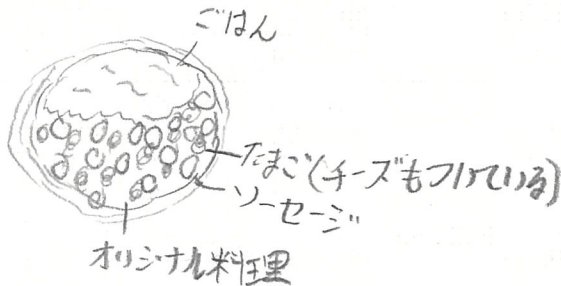 ごはん
たまご(チーズもついている)
ソーセージ
オリジナル料理